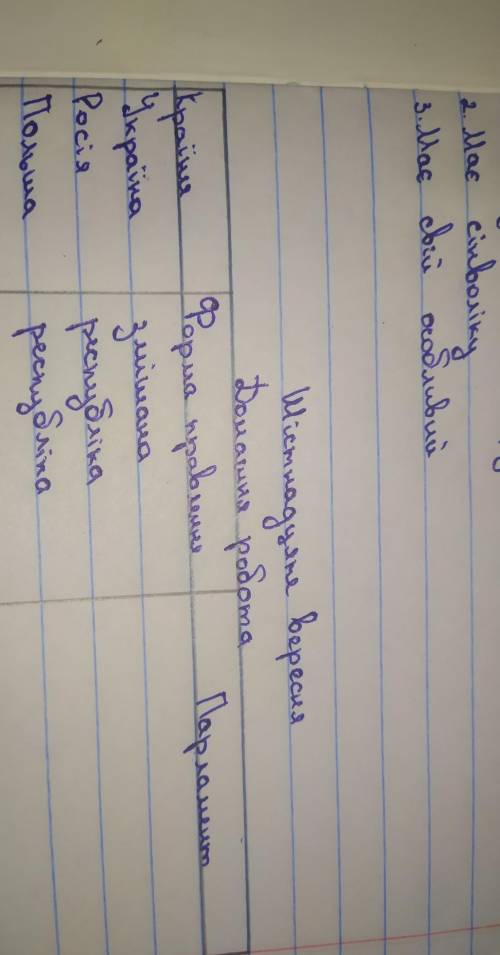 2. Має сімволіку
3. Має свій особливий
Шістнадцяте вересня
Домашня робота
Країна Форма правління Парламент
Україна змішана
Росія республіка
Польша республіка